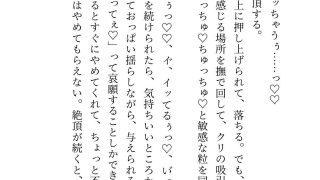 ッちゃうぅ……っ♡♡
頂する。
上に押し上げられて、落ちる。でも、
感じる場所を撫で回して、クリの吸引
っちゅ♡ちゅっちゅ♡と敏感な粒を同
ぅっ♡♡、イ、イッてるぅっ♡、
を続けられたら、気持ちいいところか
ておっぱい揺らしながら、与えられる
ってぇ♡」って哀願することしかでき
るとすぐにやめてくれて、ちょっと
はやめてもらえない。絶頂が続くと、